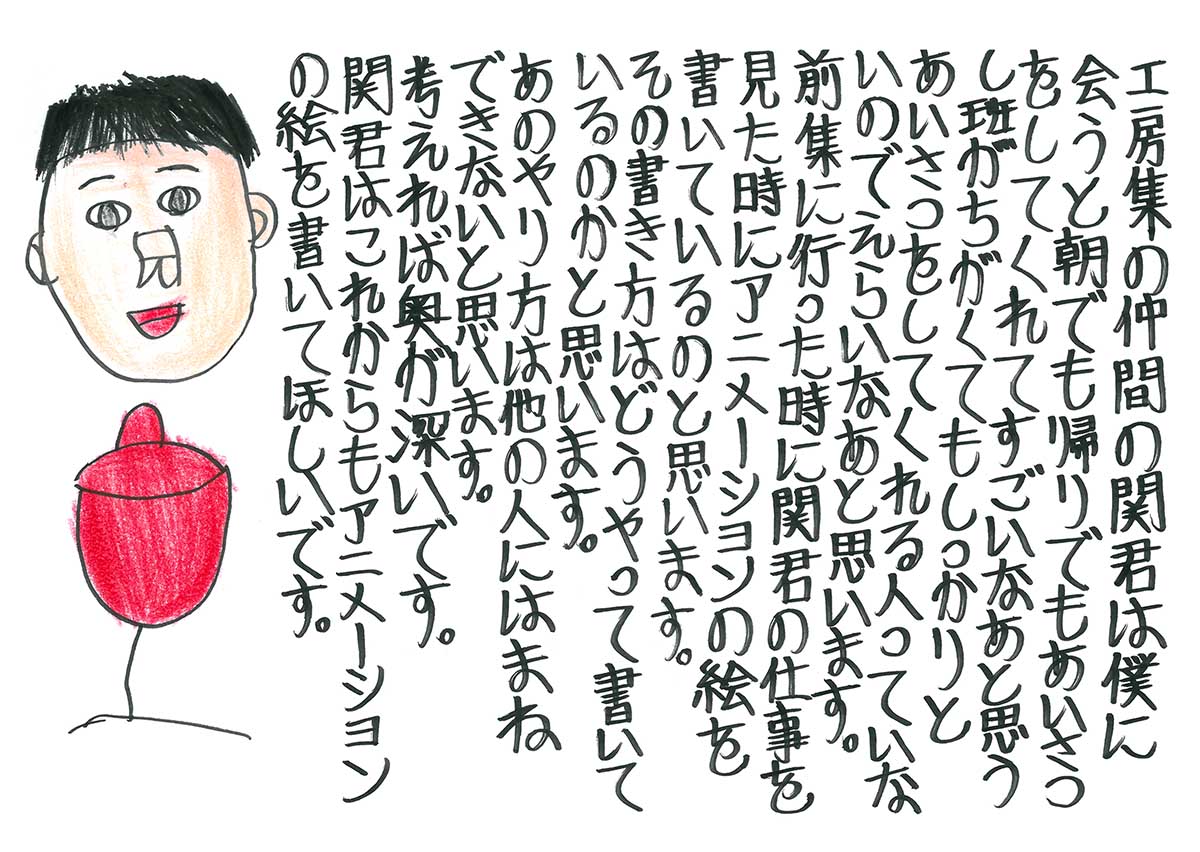 工房集の仲間の関君は僕に
会うと朝でも帰りでもあいさつ
をしてくれてすごいなあと思う
し班がちがくてもしっかりと
あいさつをしてくれる人っていな
いのでえらいなあと思います。
前集に行った時に関君の仕事を
見た時にアニメーションの絵を
書いているのと思います。
その書き方はどうやって書いて
いるのかと思います。
あのやり方は他の人にはまね
できないと思います。
考えれば奥が深いです。
関君はこれからもアニメーション
の絵を書いてほしいです。